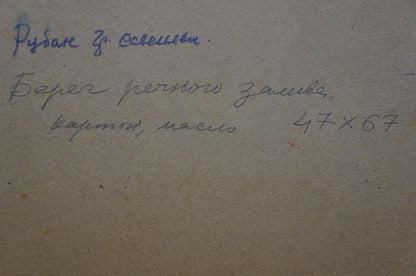 Рубан Гр. Савельевич.
Берег речного залива,
картон, масло 47×67